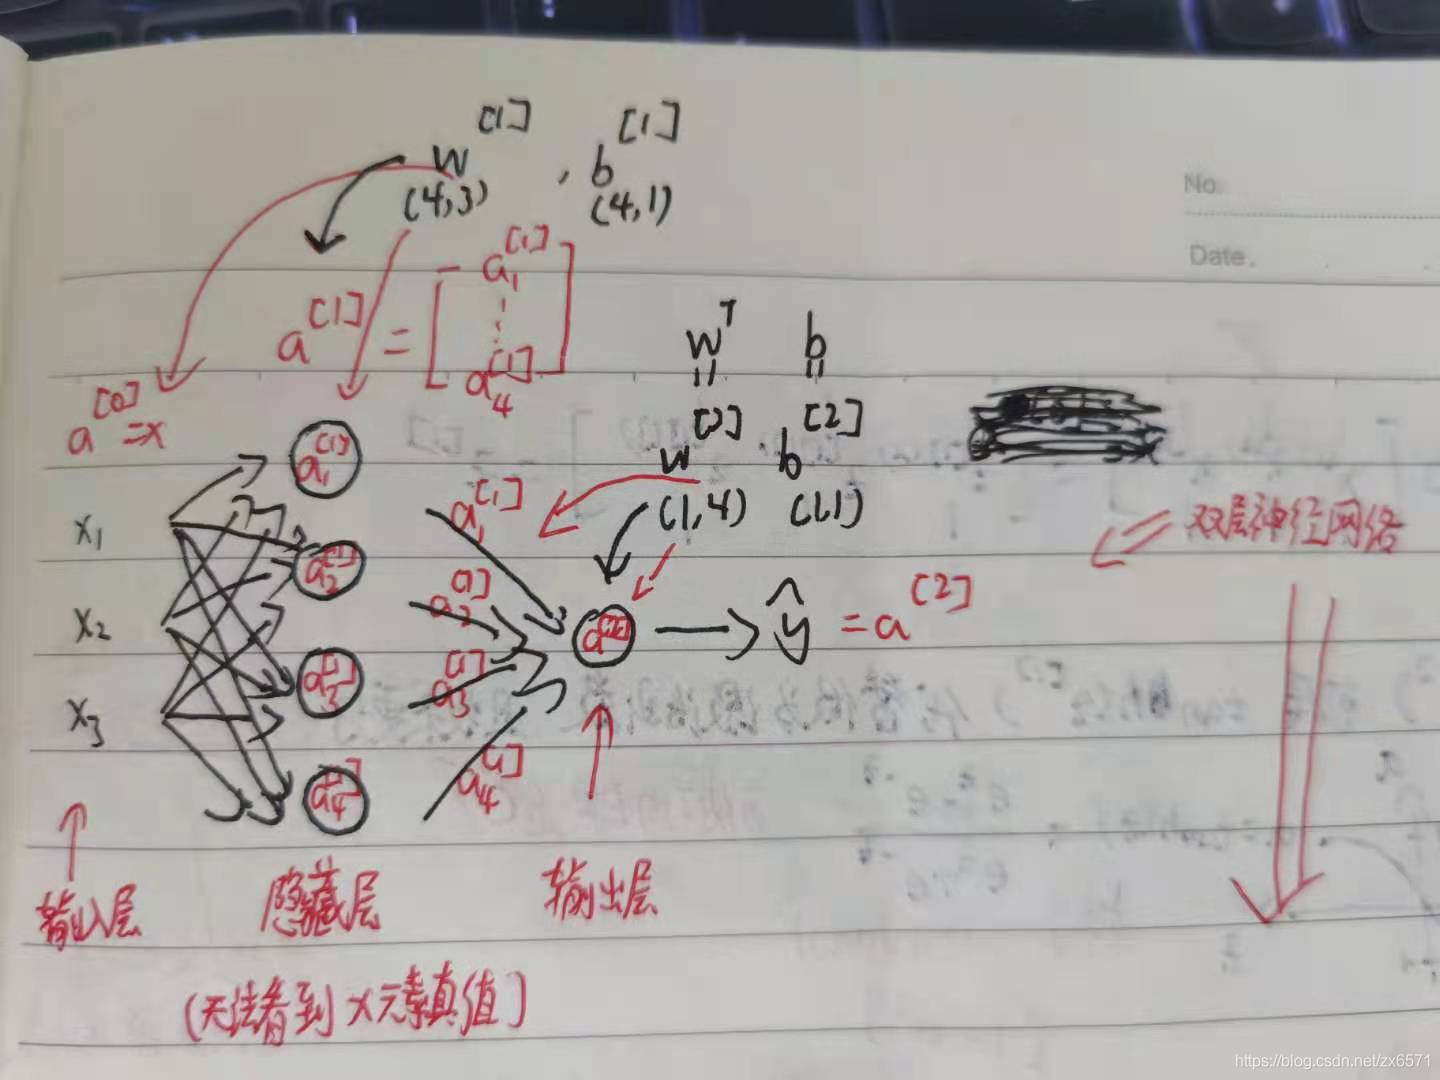 w^[1] , b^[1]
(4,3) (4,1)
No.
Date.
a^[1] = [a_1^[1] ⋮ a_4^[1]]
w^T b
= =
w^[2] b^[2]
(1,4) (1,1)
a^[0]=x
双层神经网络
x_1
x_2
x_3
a_1^[1]
a_2^[1]
a_3^[1]
a_4^[1]
a_1^[1]
a_2^[1]
a_3^[1]
a_4^[1]
a^[2]
ŷ = a^[2]
输入层 隐藏层 输出层
(无法看到x元素真值)
https://blog.csdn.net/zx6571